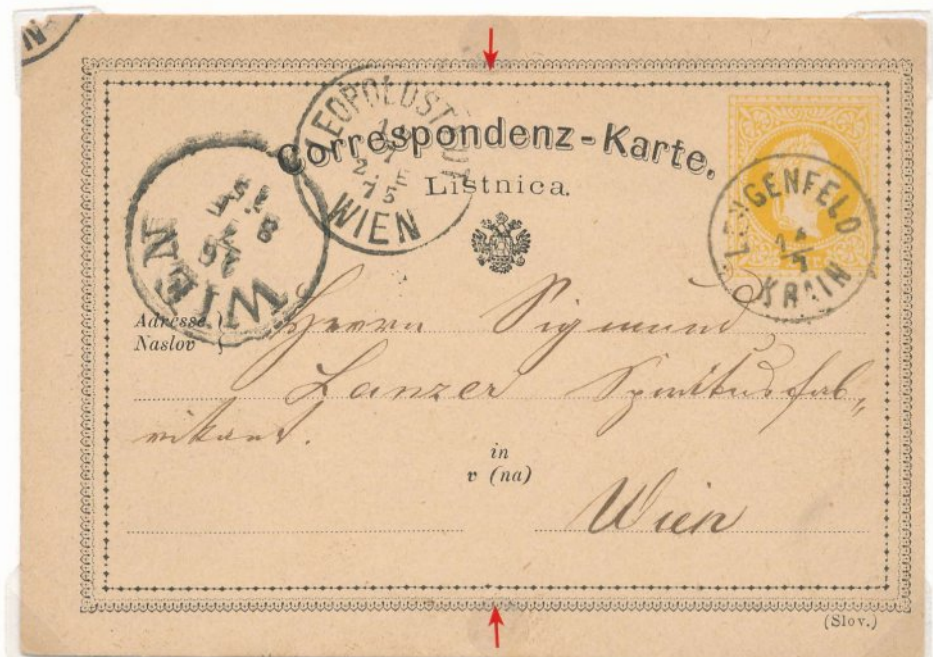 Correspondenz-Karte.
Listnica.
LEOPOLDSTADT
WIEN
WIEN
LENGENFELD
14
7
KRAIN
Adresse
Naslov
Herrn Sigmund
Lanzer Spiritusfab-
rikant.
in
v (na)
Wien
(Slov.)